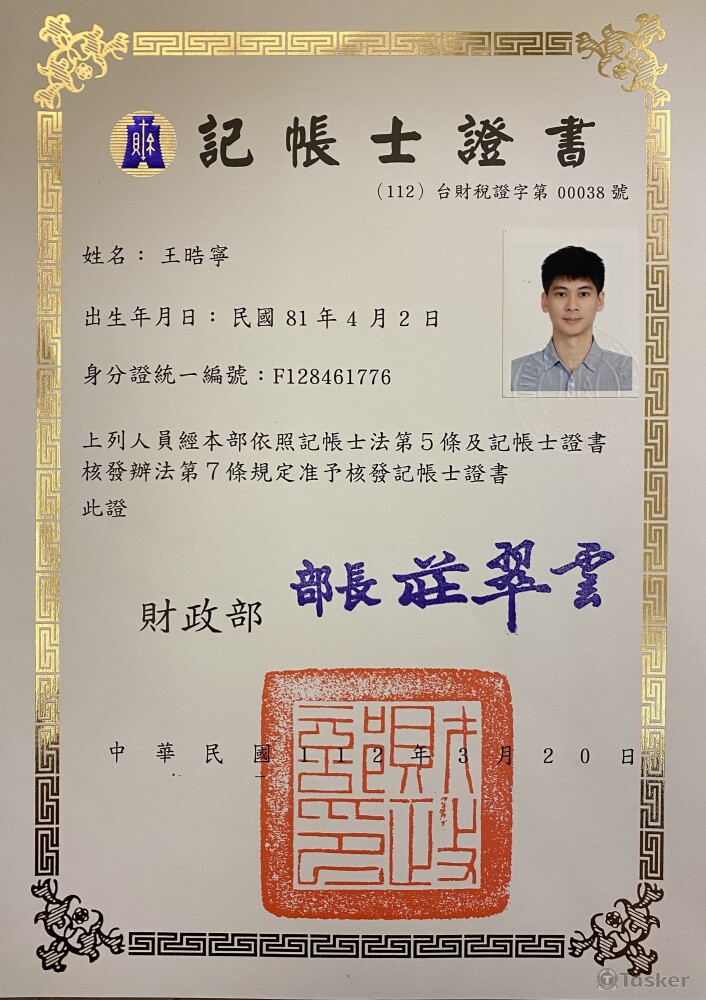 財
記帳士證書
(112) 台財稅證字第 00038 號
姓名：王晧寧
出生年月日：民國 81 年 4 月 2 日
身分證統一編號：F128461776
上列人員經本部依照記帳士法第５條及記帳士證書
核發辦法第７條規定准予核發記帳士證書
此證
財政部 部長 莊翠雲
財政部印
中華民國112年3月20日
Tasker